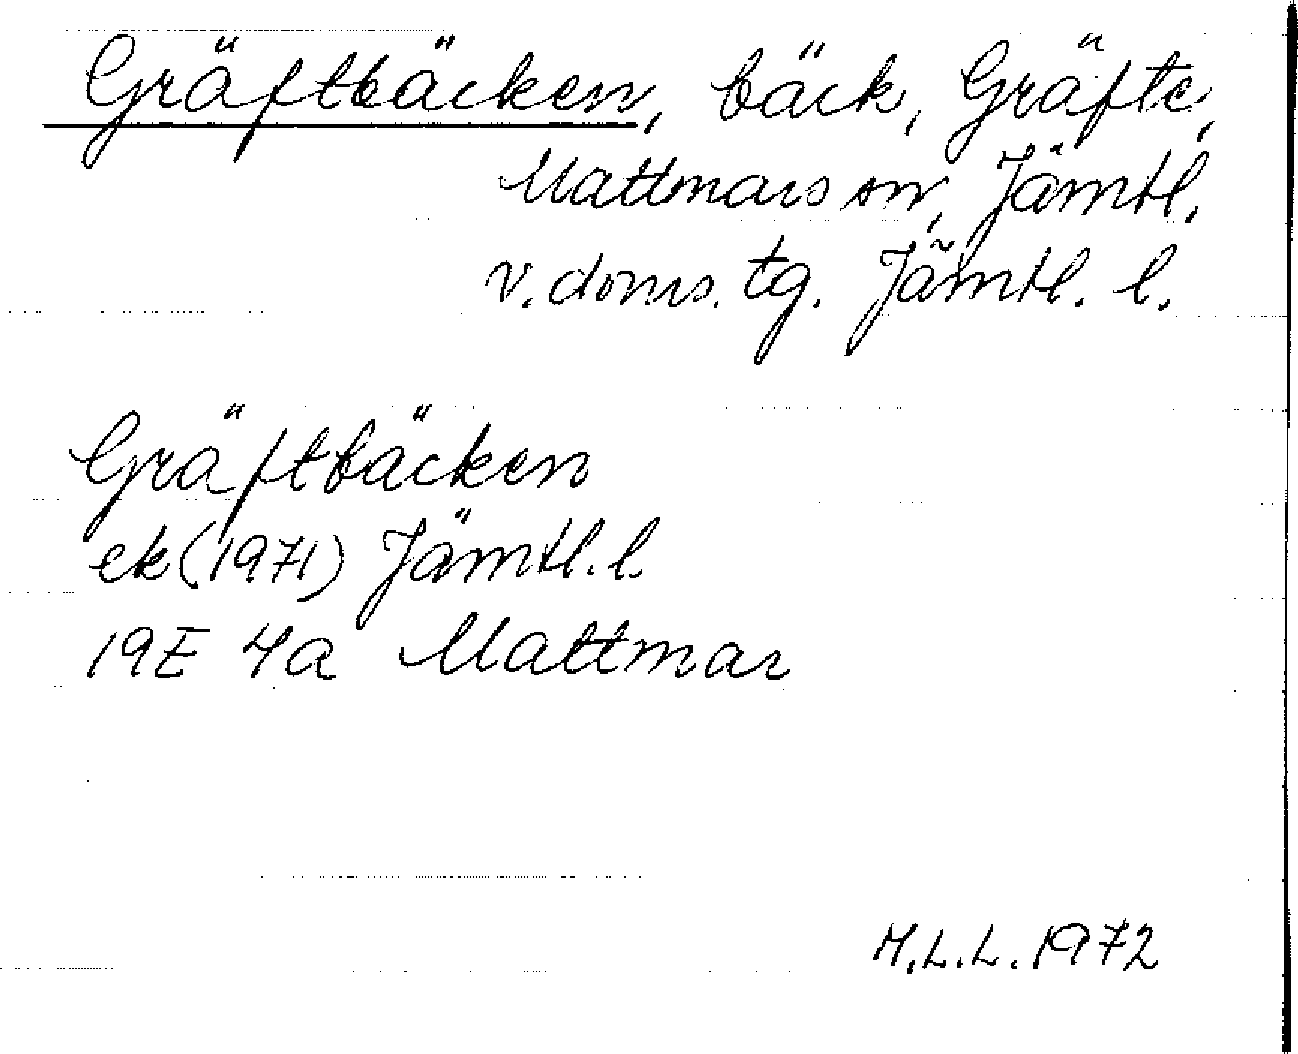 Gräftbäcken, bäck, Gräfte,
Mattmars sn, Jämtl.
v. doms. tg. Jämtl. l.
Gräftbäcken
ek (1971) Jämtl. l.
19E 4a Mattmar
M.L.L. 1972